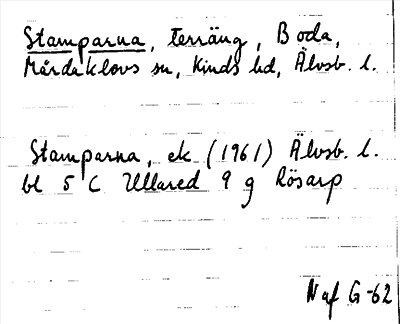 Stamparna, terräng, Boda,
Mårdaklevs sn, Kinds hd, Älvsb. l.
Stamparna, ek (1961) Älvsb. l.
bl 5 C Ullared 9 g Rösarp
Naf G-62